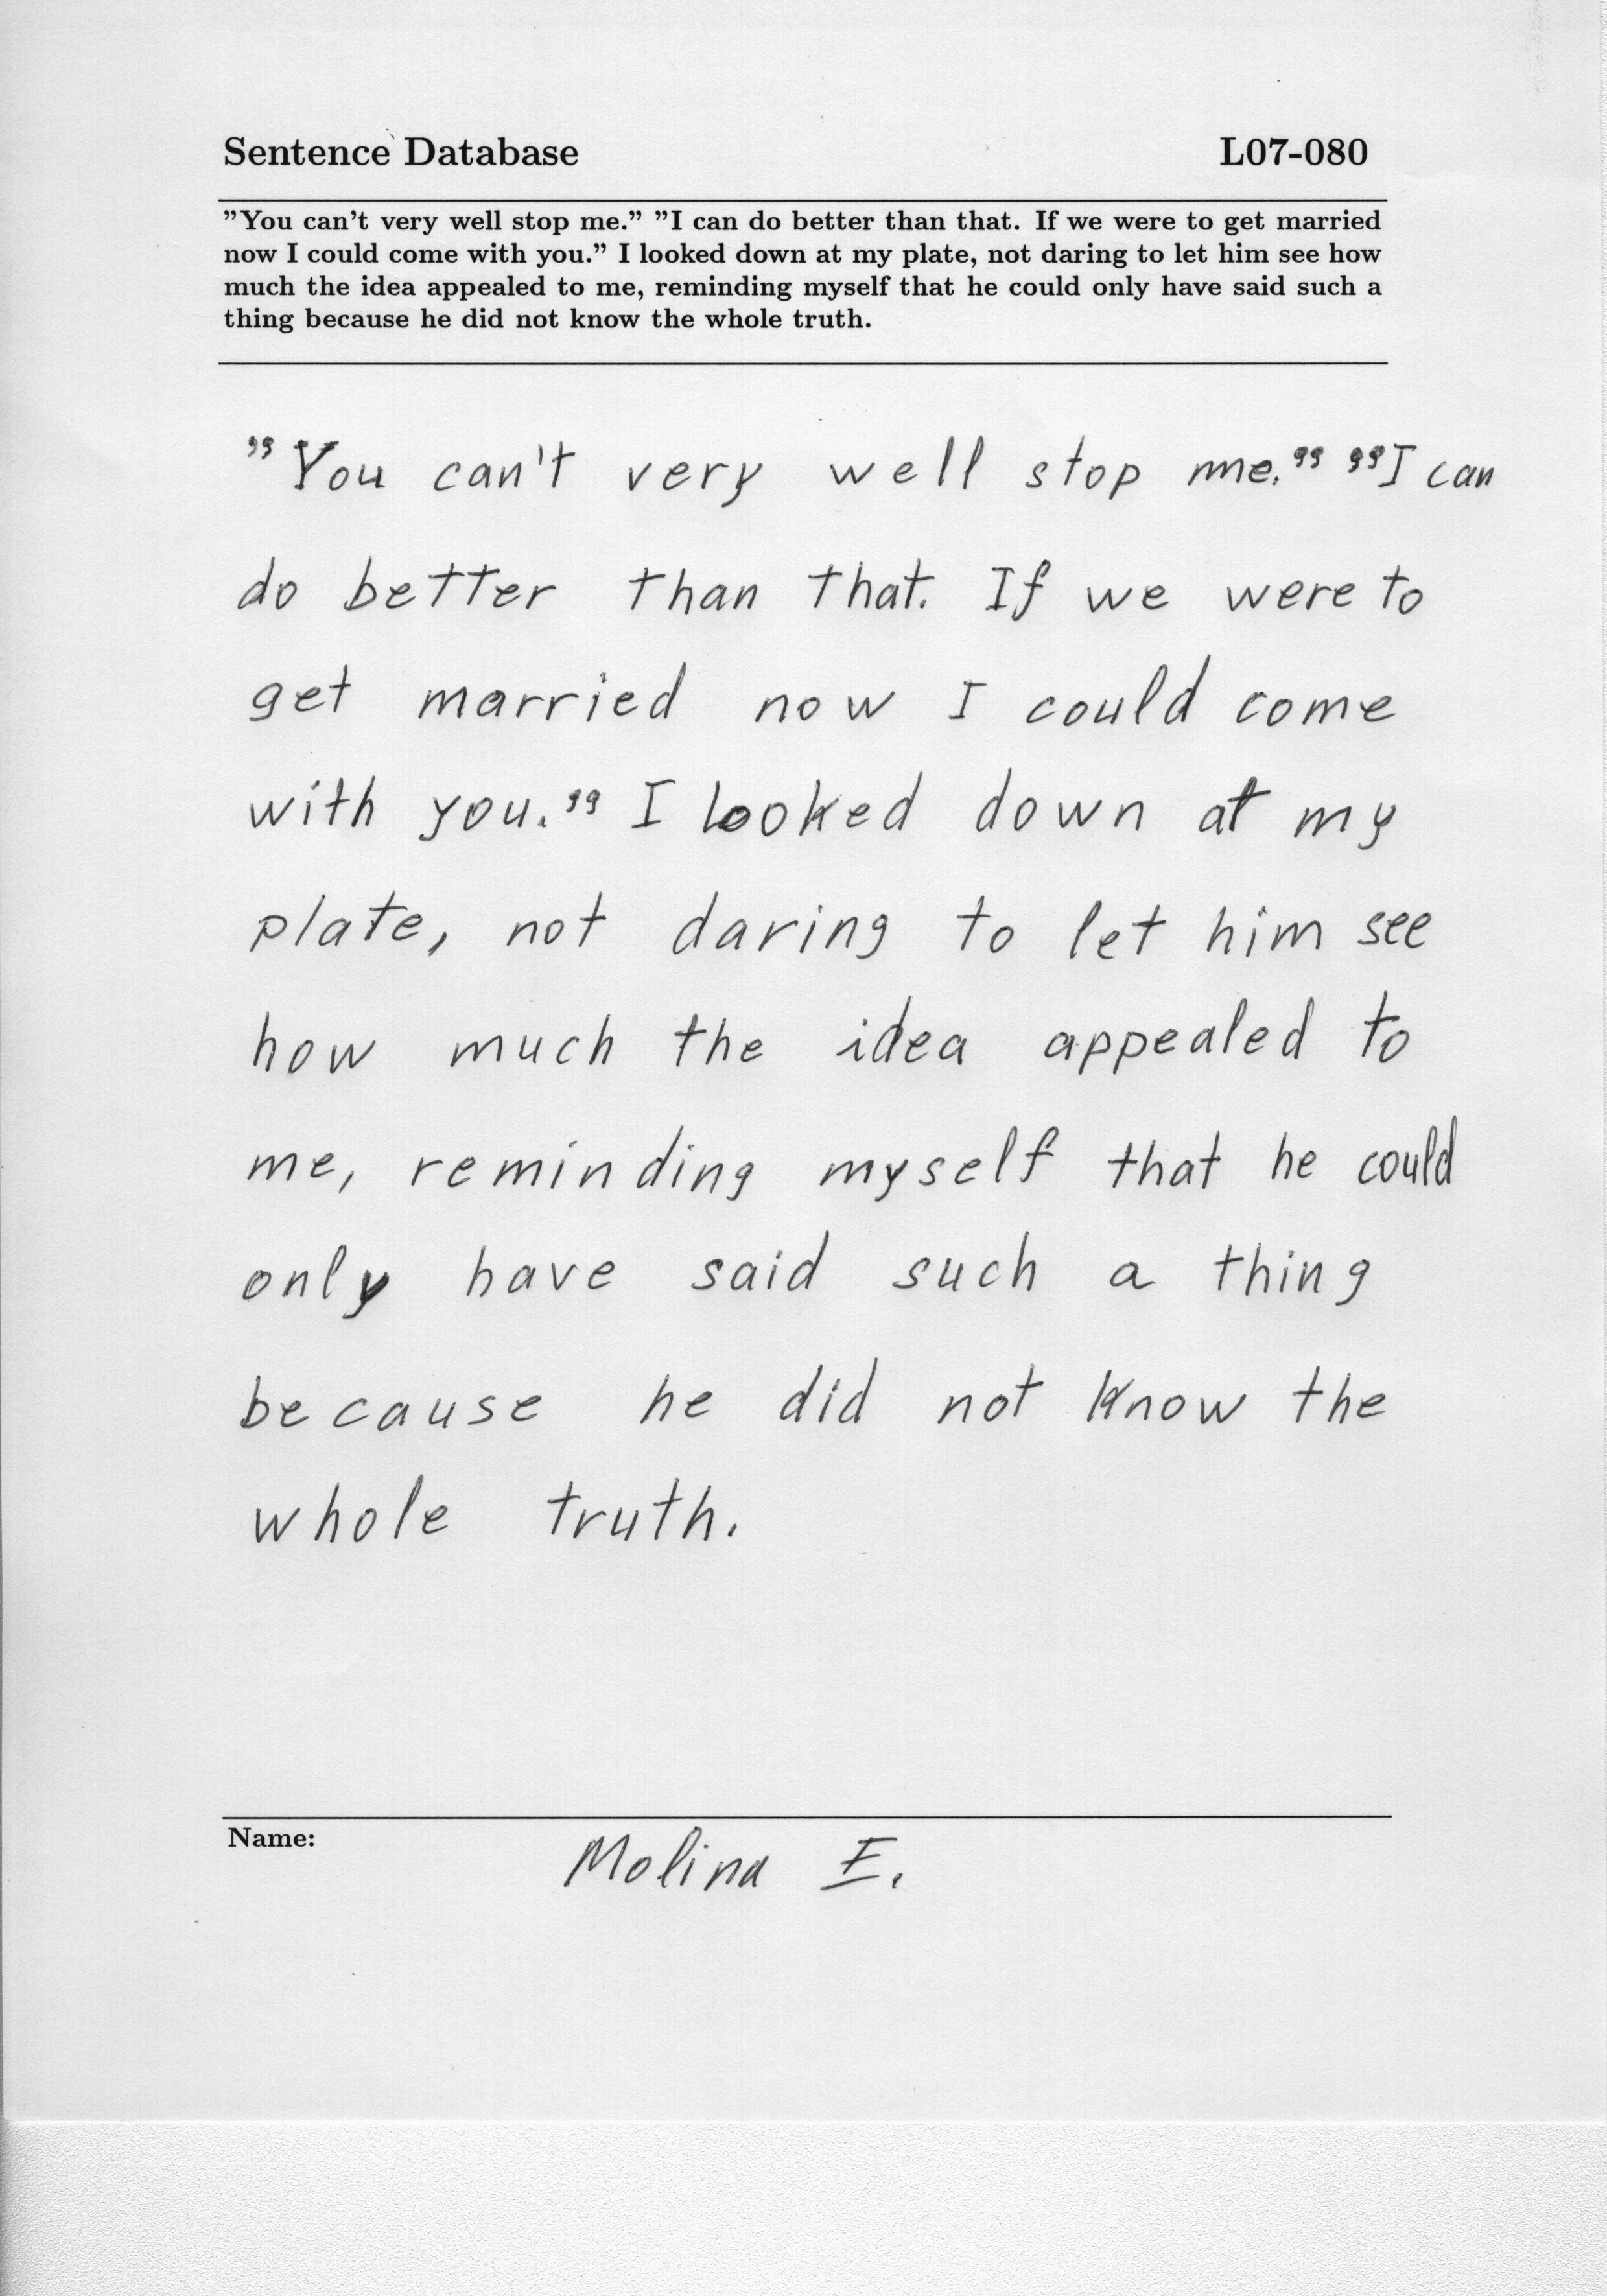 Sentence Database L07-080
”You can’t very well stop me.” ”I can do better than that. If we were to get married
now I could come with you.” I looked down at my plate, not daring to let him see how
much the idea appealed to me, reminding myself that he could only have said such a
thing because he did not know the whole truth.
”You can't very well stop me.” ”I can
do better than that. If we were to
get married now I could come
with you.” I looked down at my
plate, not daring to let him see
how much the idea appealed to
me, reminding myself that he could
only have said such a thing
because he did not know the
whole truth.
Name: Molina E.